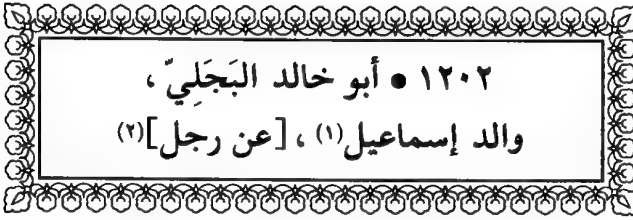 ١٢٠٢ ● أبو خالد البَجَلِيّ ،
والد إسماعيل(١) ، [عن رجل](٢)